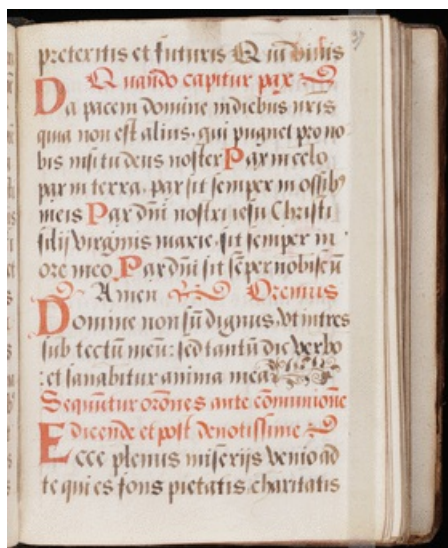 preteritis et futuris Qui vivis
Quando capitur pax
Da pacem domine in diebus nr̄is
quia non est alius. qui pugnet pro no
bis nisi tu deus noster Pax in celo
pax in terra. pax sit semper in ossibꝰ
meis Pax dn̄i nostri iesu Christi
filij virginis marie. sit semper in
ore meo. Pax dn̄i sit sēper nobiscū
Amen Oremus
Domine non sū dignus vt intres
sub tectū meū: sed tantū dic verbo
: et sanabitur anima mea
Sequūtur orōnes ante cōmunionē
dicende et post deuotissime
Ecce plenus miserijs venio ad
te qui es fons pietatis charitatis